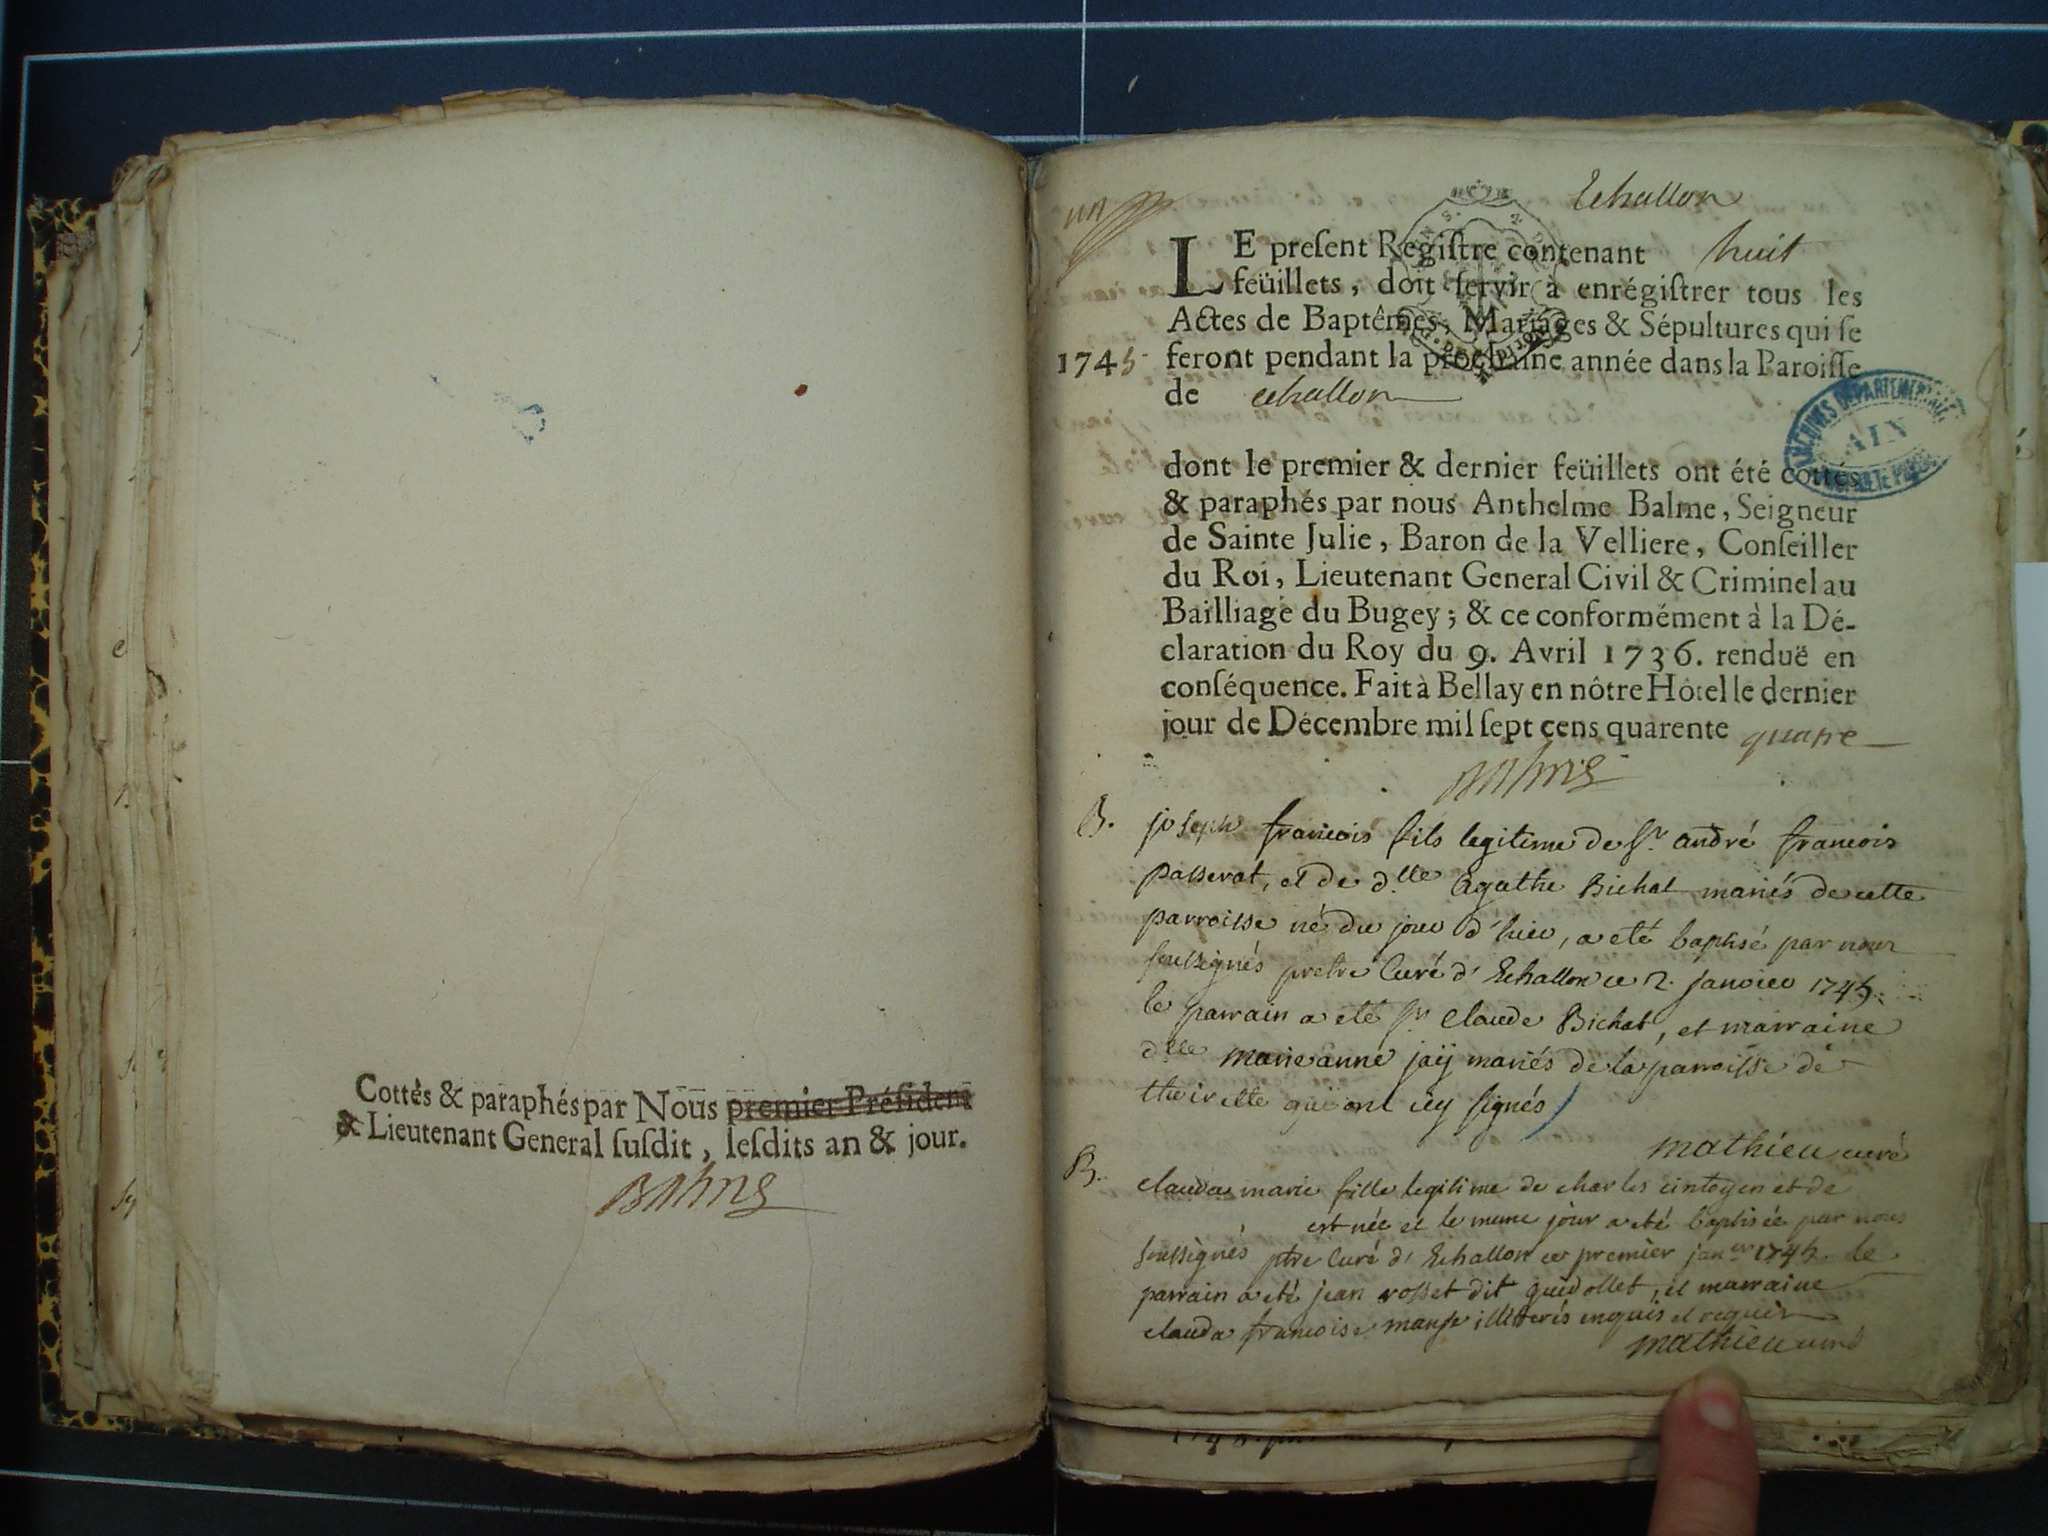 Cottés & paraphés par Nous premier Président
& Lieutenant General suſdit, leſdits an & jour.
Balme
Echallon
LE preſent Regiſtre contenant huit
feüillets, doit ſervir à enrégiſtrer tous les
Actes de Baptêmes, Mariages & Sépultures qui ſe
1745 feront pendant la prochaine année dans la Paroiſſe
de echallon
ARCHIVES DEPARTEMENTALES
AIN
dont le premier & dernier feüillets ont été cottés
& paraphés par nous Anthelme Balme, Seigneur
de Sainte Julie, Baron de la Velliere, Conſeiller
du Roi, Lieutenant General Civil & Criminel au
Bailliage du Bugey; & ce conformément à la Dé-
claration du Roy du 9. Avril 1736. renduë en
conſéquence. Fait à Bellay en nôtre Hôtel le dernier
jour de Décembre mil ſept cens quarente quatre
Balme
B. joseph francois fils legitime de Sr. andré francois
passerat, et de dlle agathe Bichat mariés de cette
parroisse né du jour d'hier, a eté baptisé par nous
soussignés pretre Curé d'Echallon ce 2. janvier 1745.
le parrain a eté sr Claude Bichat, et marraine
dlle marie anne jaÿ mariés de la parroisse de
thoirette qui ont icy signés
mathieu curé
B. clauda marie fille legitime de charles cintoyen et de
est née et le meme jour a eté baptisée par nous
soussignés ptre Curé d'Echallon ce premier janer 1745. le
parrain a eté jean rosset dit guidollet, et marraine
clauda francoise illiterés enquis et requis
mathieu curé